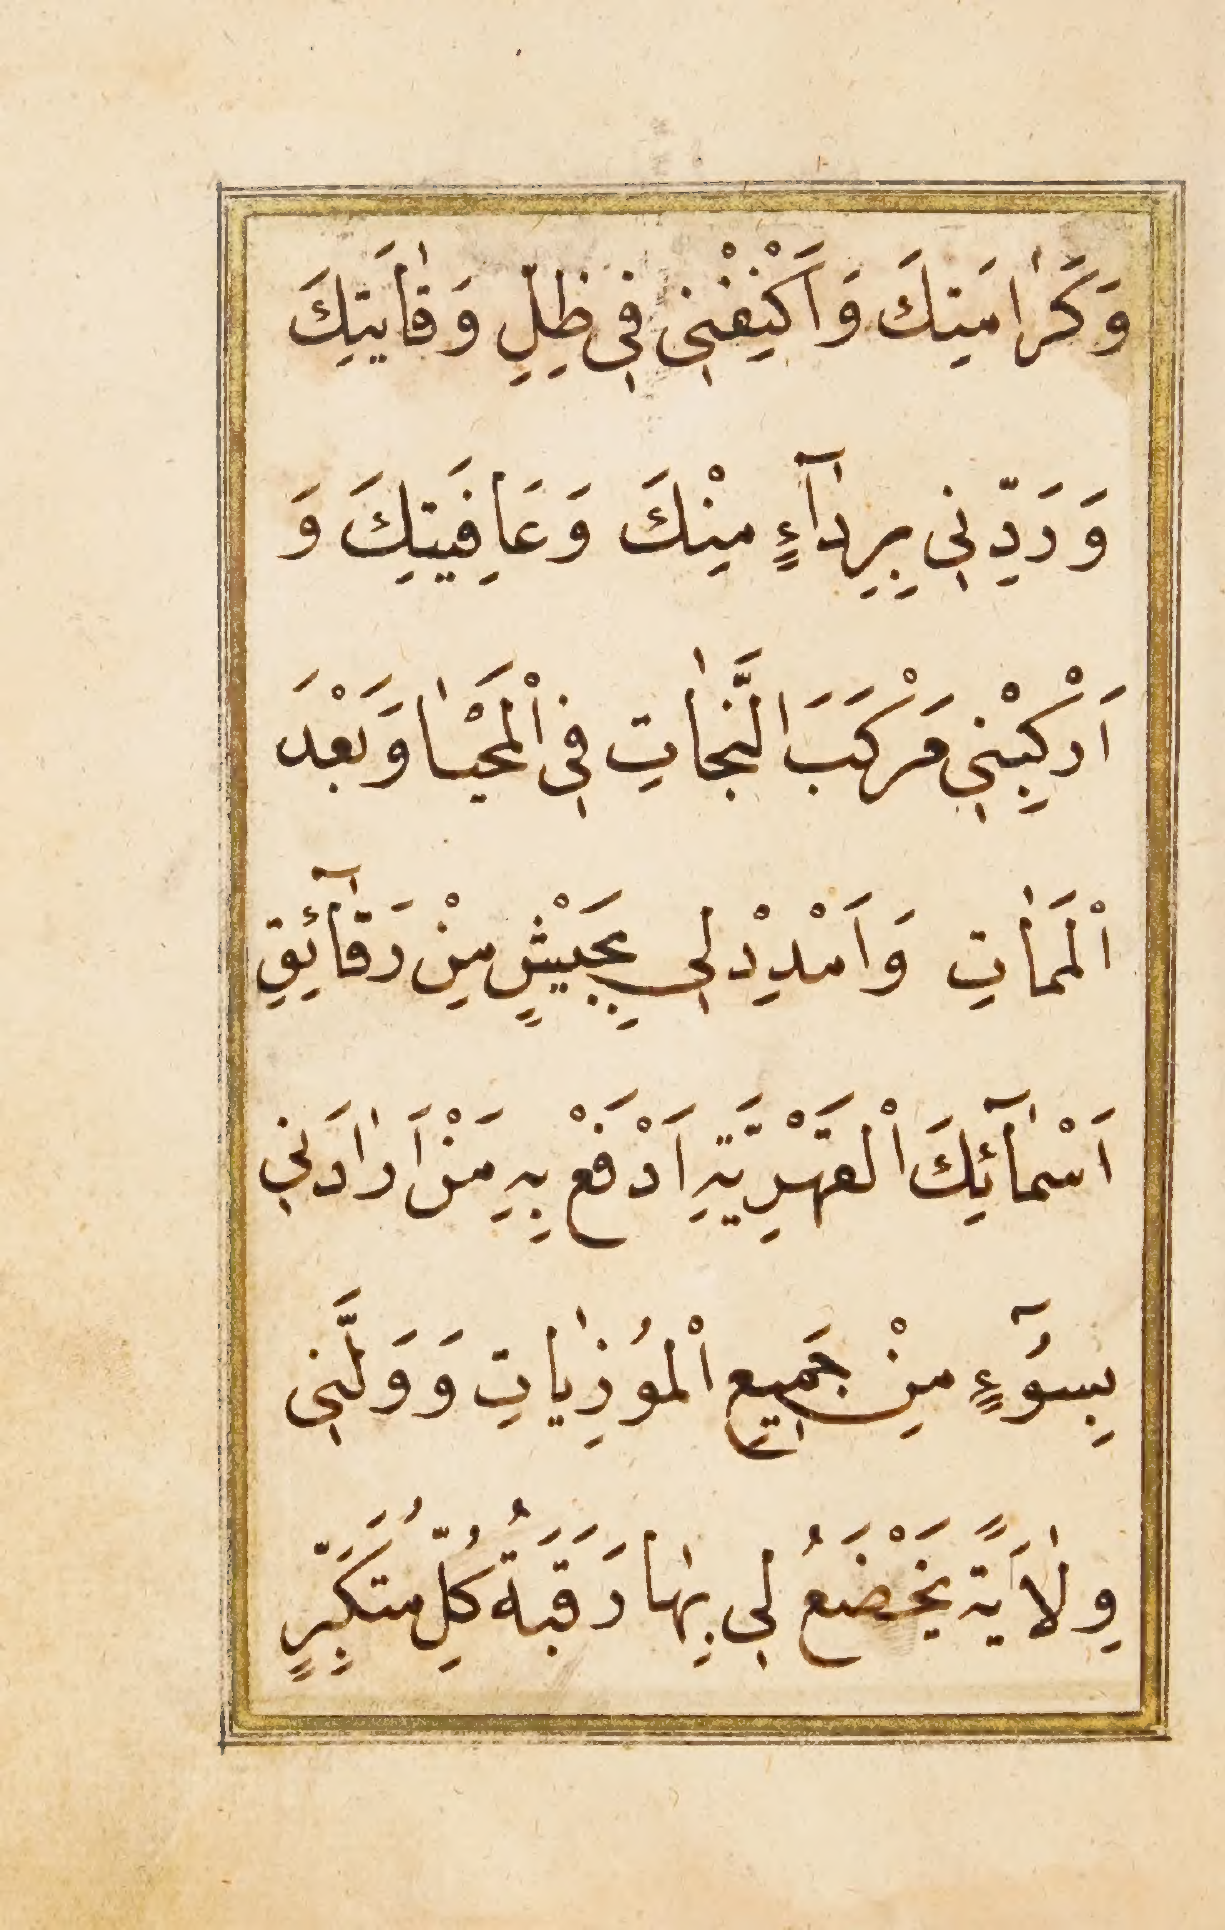 وَكَرٰامَتِكَ وَاَكْنِفْنِي فِي ظِلِّ وَقٰايَتِكَ
وَرَدِّنِي بِرِدٰآءٍ مِنْكَ وَعَافِيَتِكَ وَ
اَرْكِبْنِي مَرْكَبَ النَّجٰاتِ فِي اْلمَحْيٰا وَبَعْدَ
اْلمَمٰاتِ وَاَمْدِدْلِي بِجَيْشٍ مِنْ رَقٰٓائِقِ
اَسْمٰٓائِكَ اْلقَهْرِيَّةِ اَدْفَعْ بِهِ مَنْ اَرٰادَنِي
بِسُوٓءٍ مِنْ جَمِيعِ اْلمُوذِيٰاتِ وَوَلَّنِي
وِلٰايَةً يَخْضَعُ لِي بِهٰا رَقَبَةُ كُلِّ مُتَكَبِّرٍ